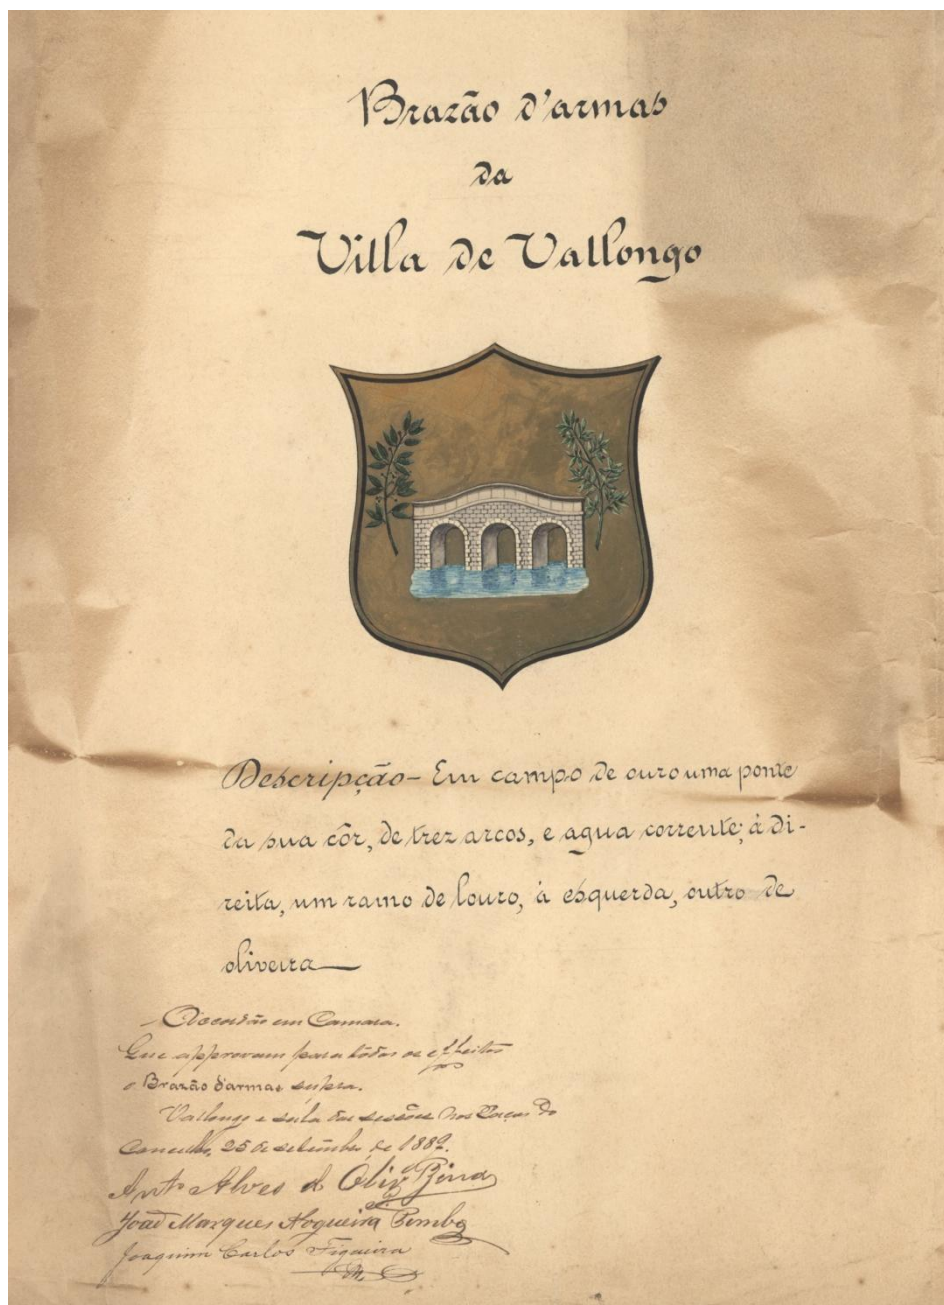 Brazão d'armas
da
Villa de Vallongo
Descripção - Em campo de ouro uma ponte
da sua côr, de trez arcos, e agua corrente; á di-
reita, um ramo de louro, á esquerda, outro de
oliveira
Accordão em Camara.
Que approvam para todos os effeitos
o Brazão d'armas supra.
Vallongo e sala das sessões nos Paços do
Concelho, 25 de setembro de 1882.
Antº Alves d' Olivª
João Marques Nogueira Pombo
Joaquim Carlos Figueira